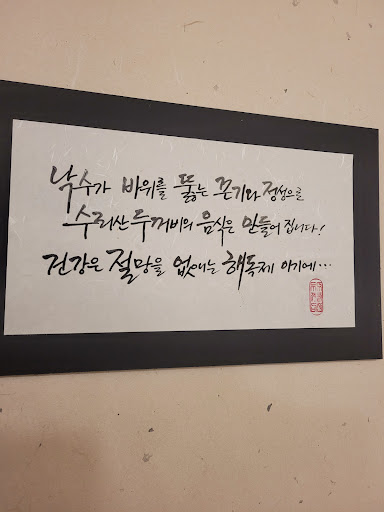 낙수가 바위를 뚫는 끈기와 정성으로
수리산 두꺼비의 음식은 만들어 집니다!
건강은 절망을 없애는 해독제 이기에...